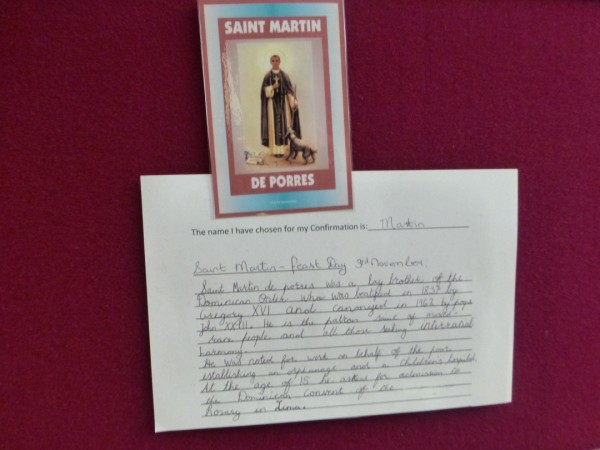 SAINT MARTIN
DE PORRES
The name I have chosen for my Confirmation is: Martin
Saint Martin - feast Day 3rd November.
Saint Martin de porres was a lay brother of the
Dominican Order whow was beatified in by
Gregory XVI and canonized in 1962 by pope
John XXIII. He is the patron of mixed-
race people and all those interracial
harmony.
He was noted for work on behalf of the poor
establishing an orphanage and a children's hospital.
At the age of 15 he asked for admission to
the Dominican Convent of the
Rosary in Lima.